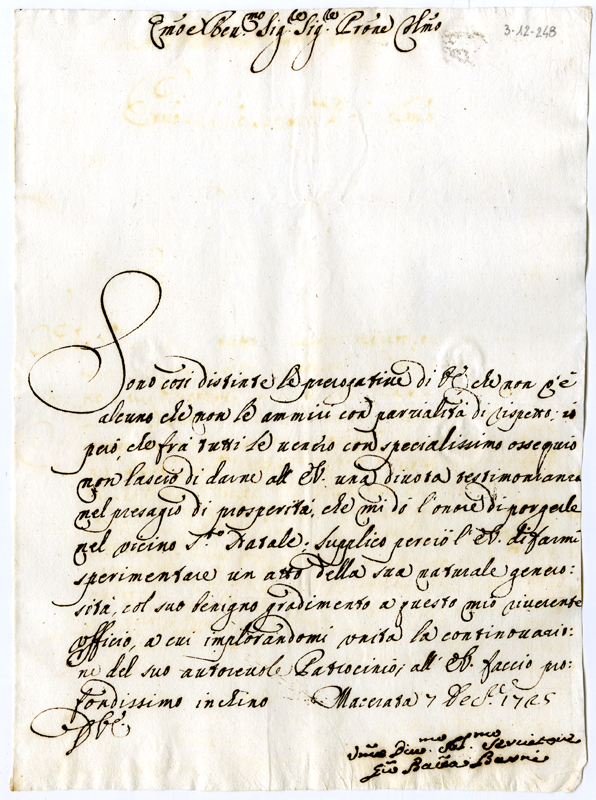 Emo e Rev.mo Sig.re Sig.re Prone Colmo
3-12-248
Sono così distinte le prerogative di VE che non v'è
alcuno che non le ammiri con parzialità di rispetto; io
però, che frà tutti le venero con specialissimo ossequio
non lascio di darne all' EV. una divota testimonianza
nel presagio di prosperità, che mi dò l'onore di porgerle
nel vicino S.to Natale. Supplico perciò l'EV. di farmi
sperimentare un atto della sua naturale genero:
sità, col suo benigno gradimento a questo mio riverente
ufficio, a cui implorandomi unita la continuazio:
ne del suo autorevole Patrocinio; all' EV. faccio pro:
fondissimo inchino Macerata 7 Dec.e 1725
VE.
Umo Divmo Obl.mo Servitore
Gio Batta